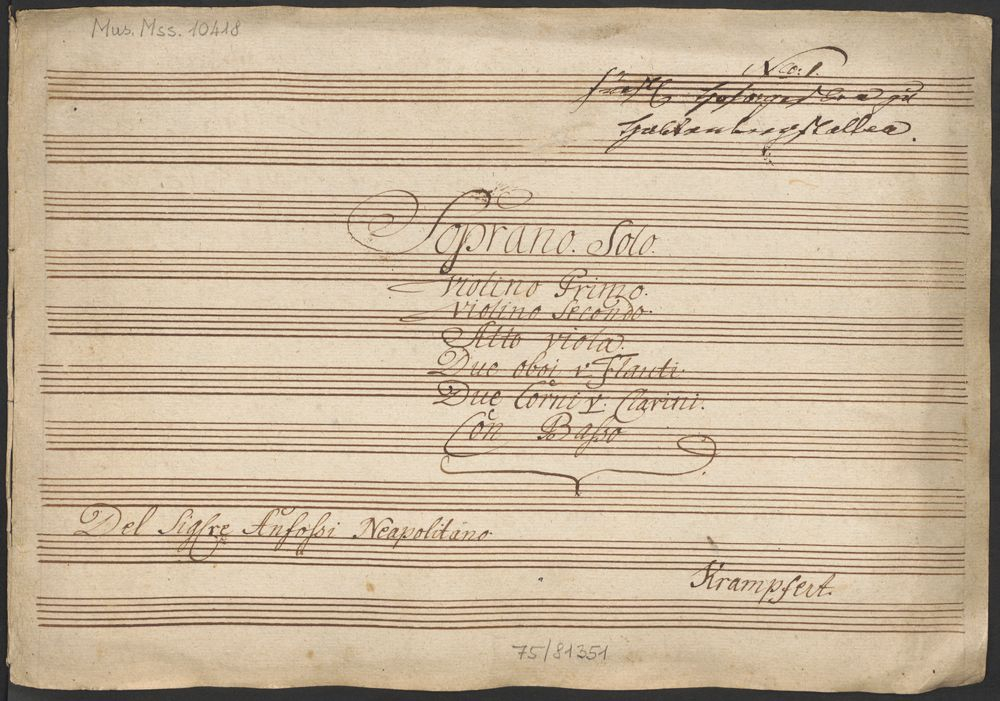 Mus. Mss. 10418
Nro: 1.
Soprano. Solo.
Violino Primo.
Violino Secondo.
Alto viola.
Due oboi v: Flauti.
Due Corni v: Clarini.
Con Basso
Del Sigre Anfossi Neapolitano.
Krampfert.
75/81351